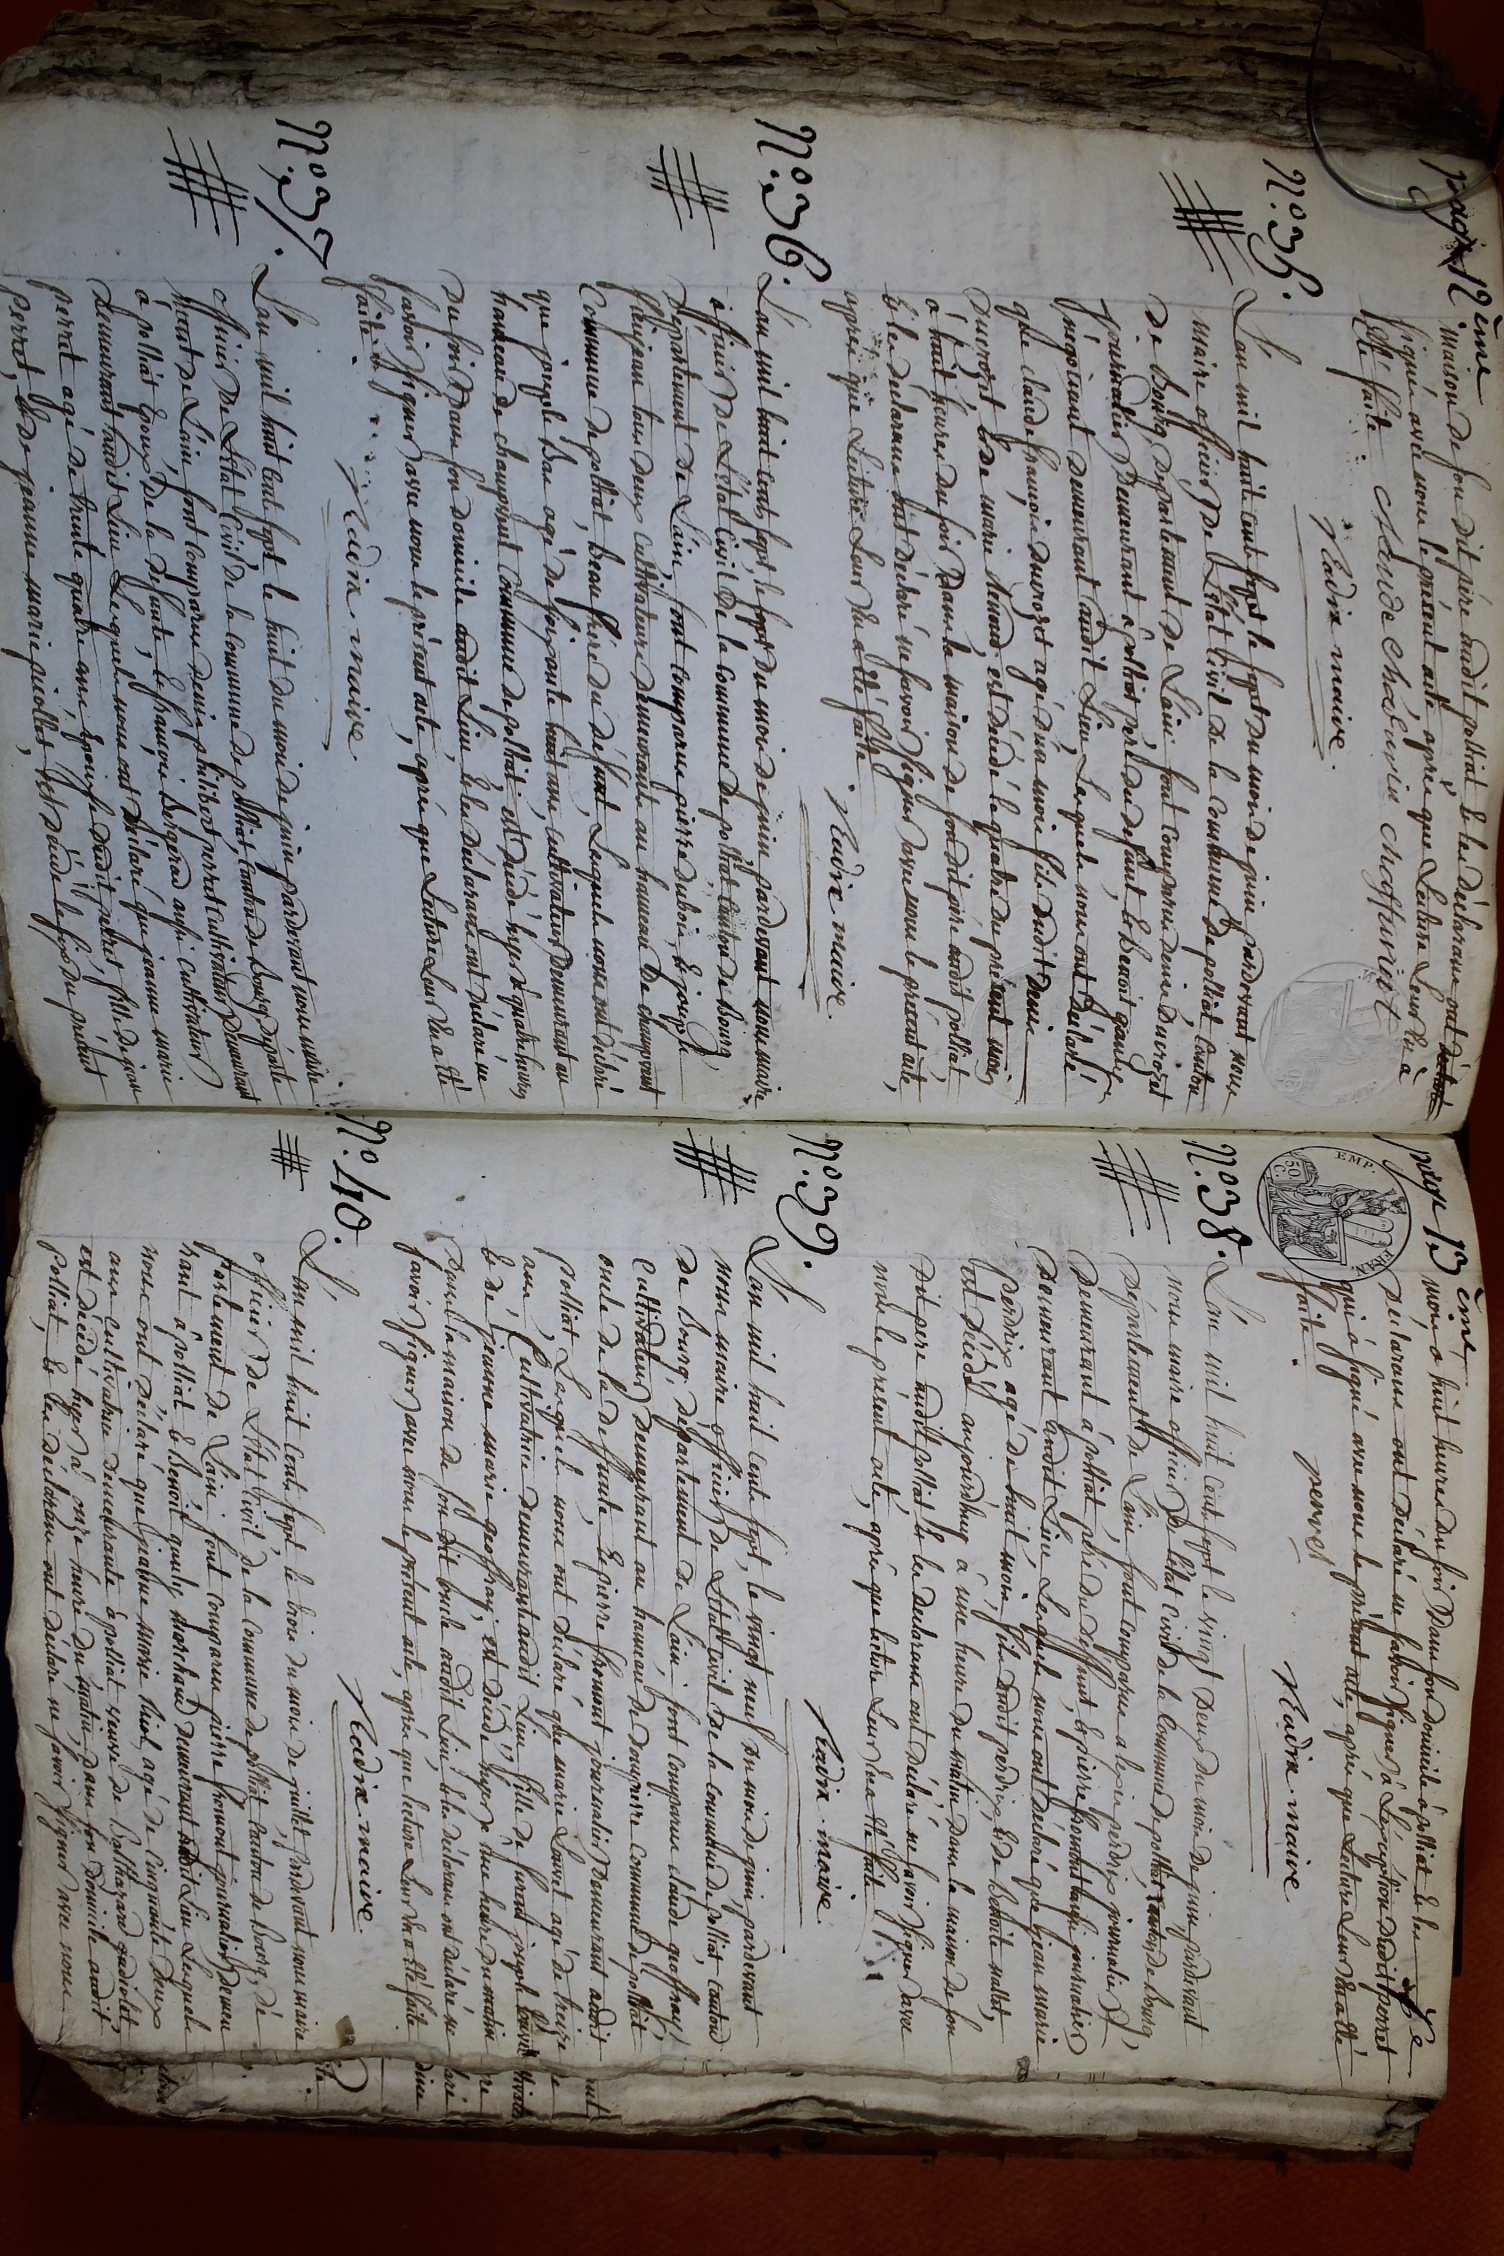 page 12ème
maison de son dit père audit polliat & les déclarans ont
signé avec nous le présent acte, après que Lecture Leur En a
Eté faite Claude Chaduriu chaffurinot
Nadin maire.
N.° 35.
L'an mil huit cents sept le sept du mois de juin pardevant nous
maire officier De L'Etat Civil de la commune de polliat Canton
De Bourg, Département de L'ain sont comparus denis Duvroget
journalier Demeurant à polliat, père du defunt, & Benoit
négociant demeurant audit Lieu, Lesquels nous ont Déclaré
que claude françois duvroget agé d'un mois fils dudit Denis
Duvroget & de marie Morand est décédé le quatre du présent mois
à huit heures du soir Dans la maison de son dit père audit polliat,
& les declarans ont déclaré ne savoir signer avec nous le présent acte,
après que Lecture Leur En a Eté faite
Nadin maire.
N.° 36.
L'an mil huit cents sept, le sept du mois de juin pardevant nous maire
officier De L'état Civil De la Commune De polliat Canton de Bourg,
Département De L'ain, sont comparus pierre dubois, & joseph
tous deux cultivateurs Demeurants au hameau De champvent
Commune de polliat, Beau frère du défunt, Lesquels nous ont déclaré
que joseph Bas agé de soixante huit ans, cultivateur Demeurant au
hameau de champvent commune de polliat, est décédé hyer à quatre heures
du soir Dans son domicile audit Lieu, & les déclarans ont déclaré ne
savoir signer avec nous le présent acte, après que Lecture Leur En a Eté
faite.
Nadin maire
N.° 37.
L'an mil huit Cent sept le huit du mois de juin pardevant nous maire
officier De L'état Civil, de la Commune de polliat, Canton de Bourg Départe
ment De L'ain, sont Comparus denis philibert perret cultivateur Demeurant
à polliat Epoux De la defunte, & françois Bergerad aussi cultivateur
demeurant audit Lieu Lesquels nous ont Déclaré que jeanne marie
perrat agé de trente quatre ans, Epouse dudit perret, fille de jean
perrat, & de jeanne marie piollet est décédé le sept du présent
page 13ème
mois à huit heures du soir Dans son domicile à polliat & les
Déclarans ont Déclaré ne savoir signer à L'exeption dudit perret
qui a signé avec nous le présent acte, après que Lecture Leur En a Eté
faite. perret
Nadin maire
N.° 38.
L'an mil huit Cent sept le vingt Deux du mois de juin pardevant
nous maire officier De L'état Civil de la Commune de polliat Canton de Bourg,
Département de L'ain, sont comparus alexis perdrix journalier
Demeurant à polliat père du deffunt, & pierre fromont aussi journalier
Demeurant audit Lieu Lesquels nous ont déclaré que jean marie
perdrix agé de huit mois, fils Dudit perdrix, & de Benoite mullet,
Est Décédé aujourdhuy à une heure du matin Dans la maison de son
Dit père audit polliat & les declarans ont déclaré ne savoir signer avec
nous le présent acte, après que lecture Leur En a Eté faite.
Nadin maire.
N.° 39.
L'an mil huit Cents sept, le vingt neuf du mois de juin pardevant
nous maire officier de L'Etat Civil De la commune de polliat, canton
de Bourg, département de L'ain, sont comparus claude geoffray,
cultivateur demeurant au hameau de Dompierre commune de polliat
oncle de la deffunte & pierre fromont journalier Demeurant audit
polliat Lesquels nous ont déclaré que marie Louvet agé de treize
ans, Cultivatrice demeurant audit Lieu fille de furent joseph Louvet
& de jeanne marie geoffray, est décédé hyer à une heure du matin
Dans la maison de son dit oncle audit Lieu & les déclarans ont déclaré ne
savoir signer avec nous le présent acte, après que lecture Leur En a Eté faite.
Nadin maire.
N.° 40.
L'an mil huit Cents sept le trois du mois de juillet pardevant nous maire
officier De L'état Civil, de la Commune de polliat Canton de Bourg, dé
partement De L'ain, sont comparus pierre fromont journalier demeu
rant à polliat & Benoit marchand demeurant audit Lieu Lesquels
nous ont Déclaré que jeanne marie agé de cinquante Deux
ans cultivatrice demeurante à polliat, veuve de
est décédé hyer à onze heures du matin Dans son domicile audit
polliat, & les déclarans ont déclaré ne savoir signer avec nous
EMP.
50
C.